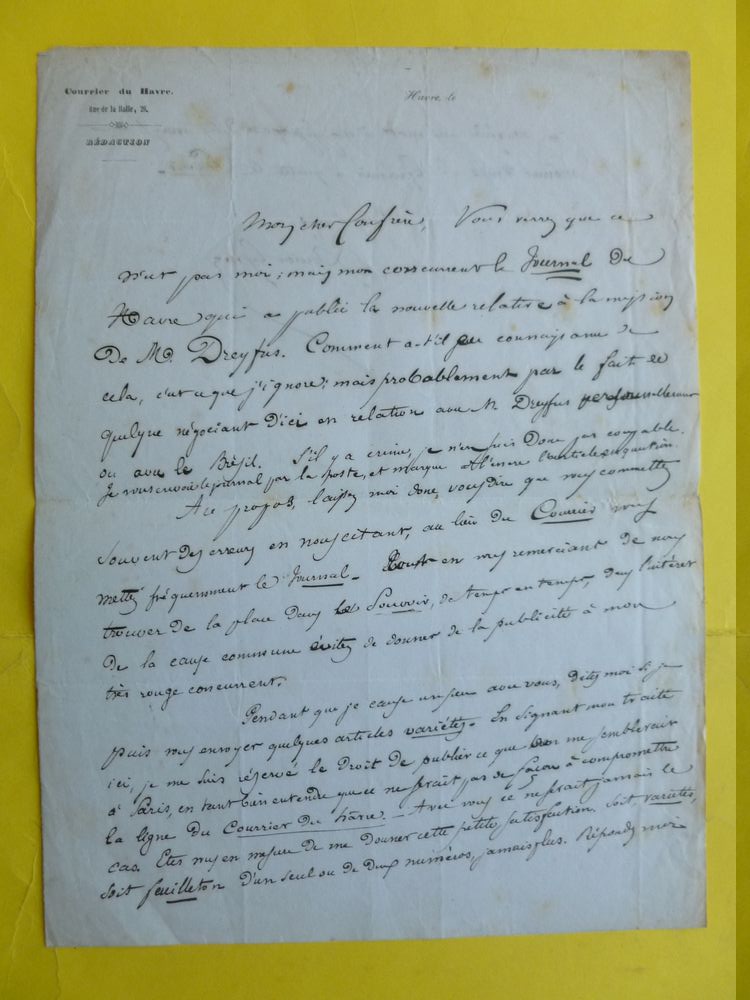 Courrier du Havre.
Rue de la Halle, 28.
RÉDACTION
Havre, le
Mon cher Confrère, Vous verrez que ce
n'est pas moi ; mais mon concurrent le Journal du
Havre qui a publié la nouvelle relative à la mission
De M. Dreyfus. Comment a-t-il pu connaissance de
cela, c'est ce que j'ignore ; mais probablement par le fait de
quelque négociant d'ici en relation avec M. Dreyfus personnellement
ou avec le Brésil. S'il y a crime, je n'en suis Donc pas coupable.
Je vous envoie le journal par la poste, et marque à l'encre l'article en question.
A ce propos, laissez moi donc vous dire que vous commettez
souvent des erreurs en nous citant, au lieu du Courrier vous
mettez fréquemment le Journal – en vous remerciant de nous
trouver de la place dans le , de temps en temps, dans l'intérêt
De la cause commune évitez de donner de la publicité à mon
très rouge concurrent.
Pendant que je cause un peu avec vous, dites moi si je
puis vous envoyer quelques articles variétés. En signant mon traité
ici, je me suis réservé le Droit de publier ce que bon me semblerait
à Paris, en tant bien entendu que ce ne serait pas de façon à compromettre
la ligne du Courrier du Havre. – Avec vous ce ne serait jamais le
cas. Etes vous en mesure de me donner cette petite satisfaction. Soit variétés,
soit feuilleton d'un seul ou de deux numéros, jamais plus. Répondez moi